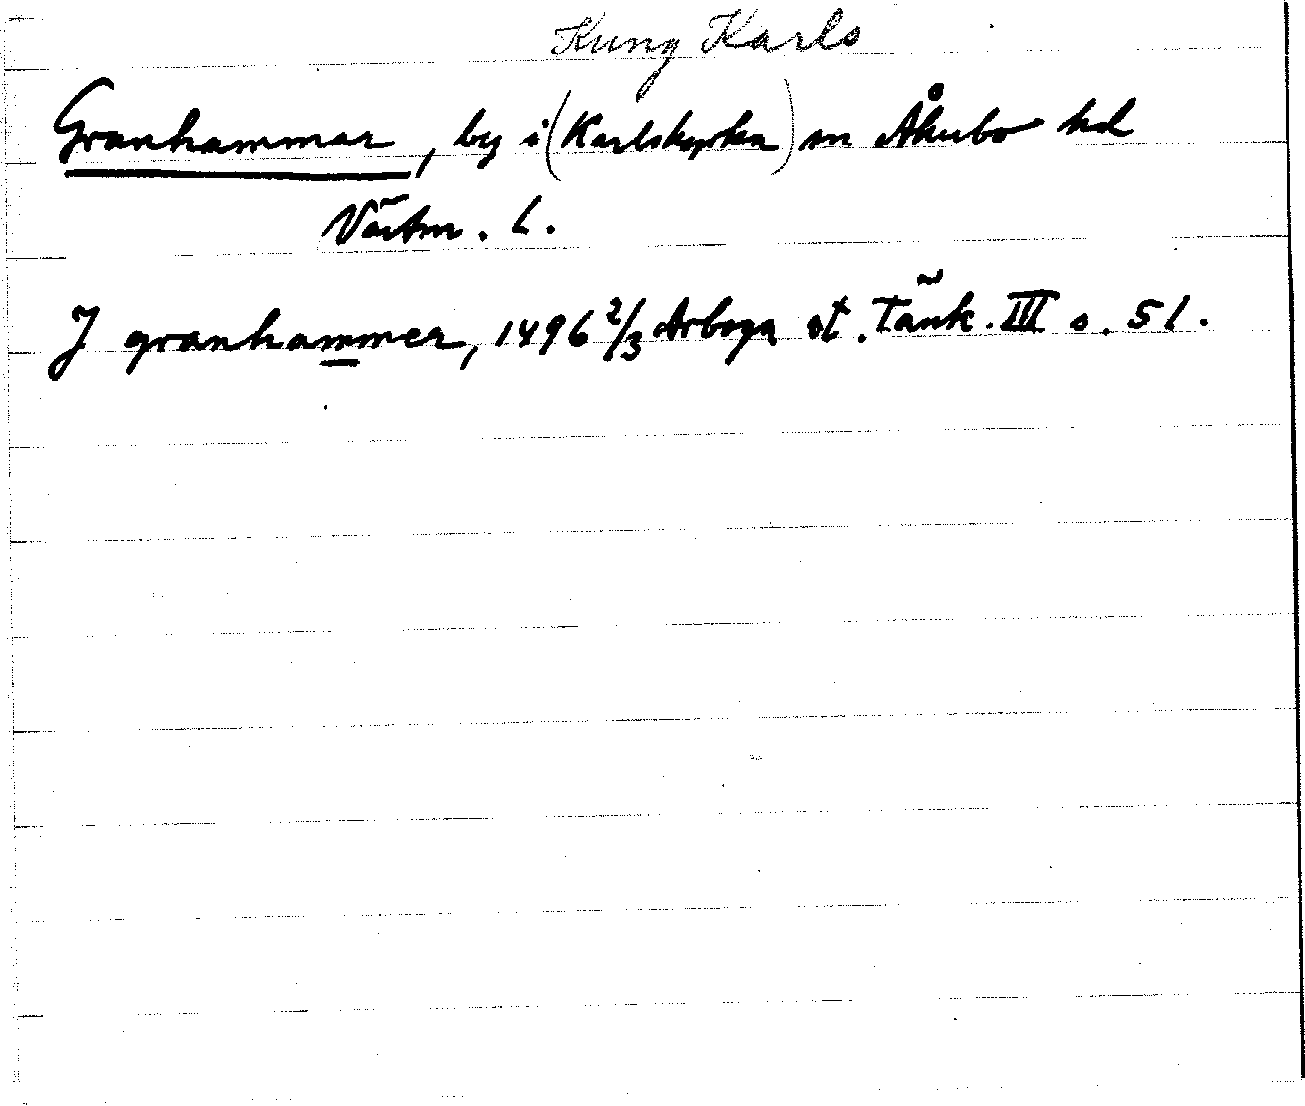 Kung Karls
Granhammar, by i (Karlskyrka) sn Åkerbo hd
Västm. L.
J granhammer, 1496 2/3 Arboga st. Tänk. III s. 51.